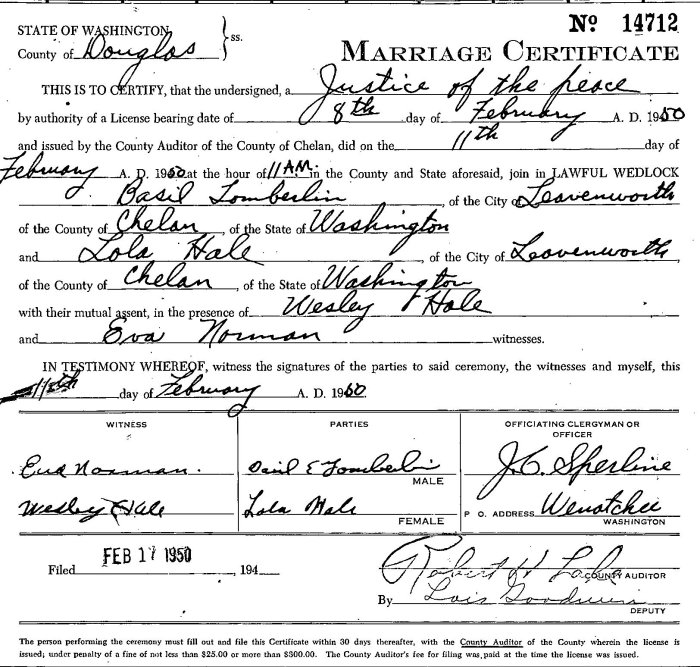 STATE OF WASHINGTON } ss.
Nº 14712
County of Douglas
MARRIAGE CERTIFICATE
THIS IS TO CERTIFY, that the undersigned, a Justice of the peace
by authority of a License bearing date of 8th day of February A. D. 1950
and issued by the County Auditor of the County of Chelan, did on the 11th day of
February A. D. 1950 at the hour of 11 A.M. in the County and State aforesaid, join in LAWFUL WEDLOCK
Basil Lomberlin, of the City of Leavenworth
of the County of Chelan, of the State of Washington
and Lola Hale, of the City of Leavenworth,
of the County of Chelan, of the State of Washington
with their mutual assent, in the presence of Wesley Hale
and Eva Norman witnesses.
IN TESTIMONY WHEREOF, witness the signatures of the parties to said ceremony, the witnesses and myself, this
11th day of February A. D. 1950
WITNESS PARTIES OFFICIATING CLERGYMAN OR OFFICER
Eva Norman. Basil E Lomberlin J.C. Sperline
MALE
Wesley Hale Lola Hale P. O. ADDRESS Wenatchee
FEMALE WASHINGTON
Filed FEB 17 1950, 194 Robert H COUNTY AUDITOR
By Lois Goodwin
DEPUTY
The person performing the ceremony must fill out and file this Certificate within 30 days thereafter, with the County Auditor of the County wherein the license is
issued; under penalty of a fine of not less than $25.00 or more than $300.00. The County Auditor's fee for filing was paid at the time the license was issued.